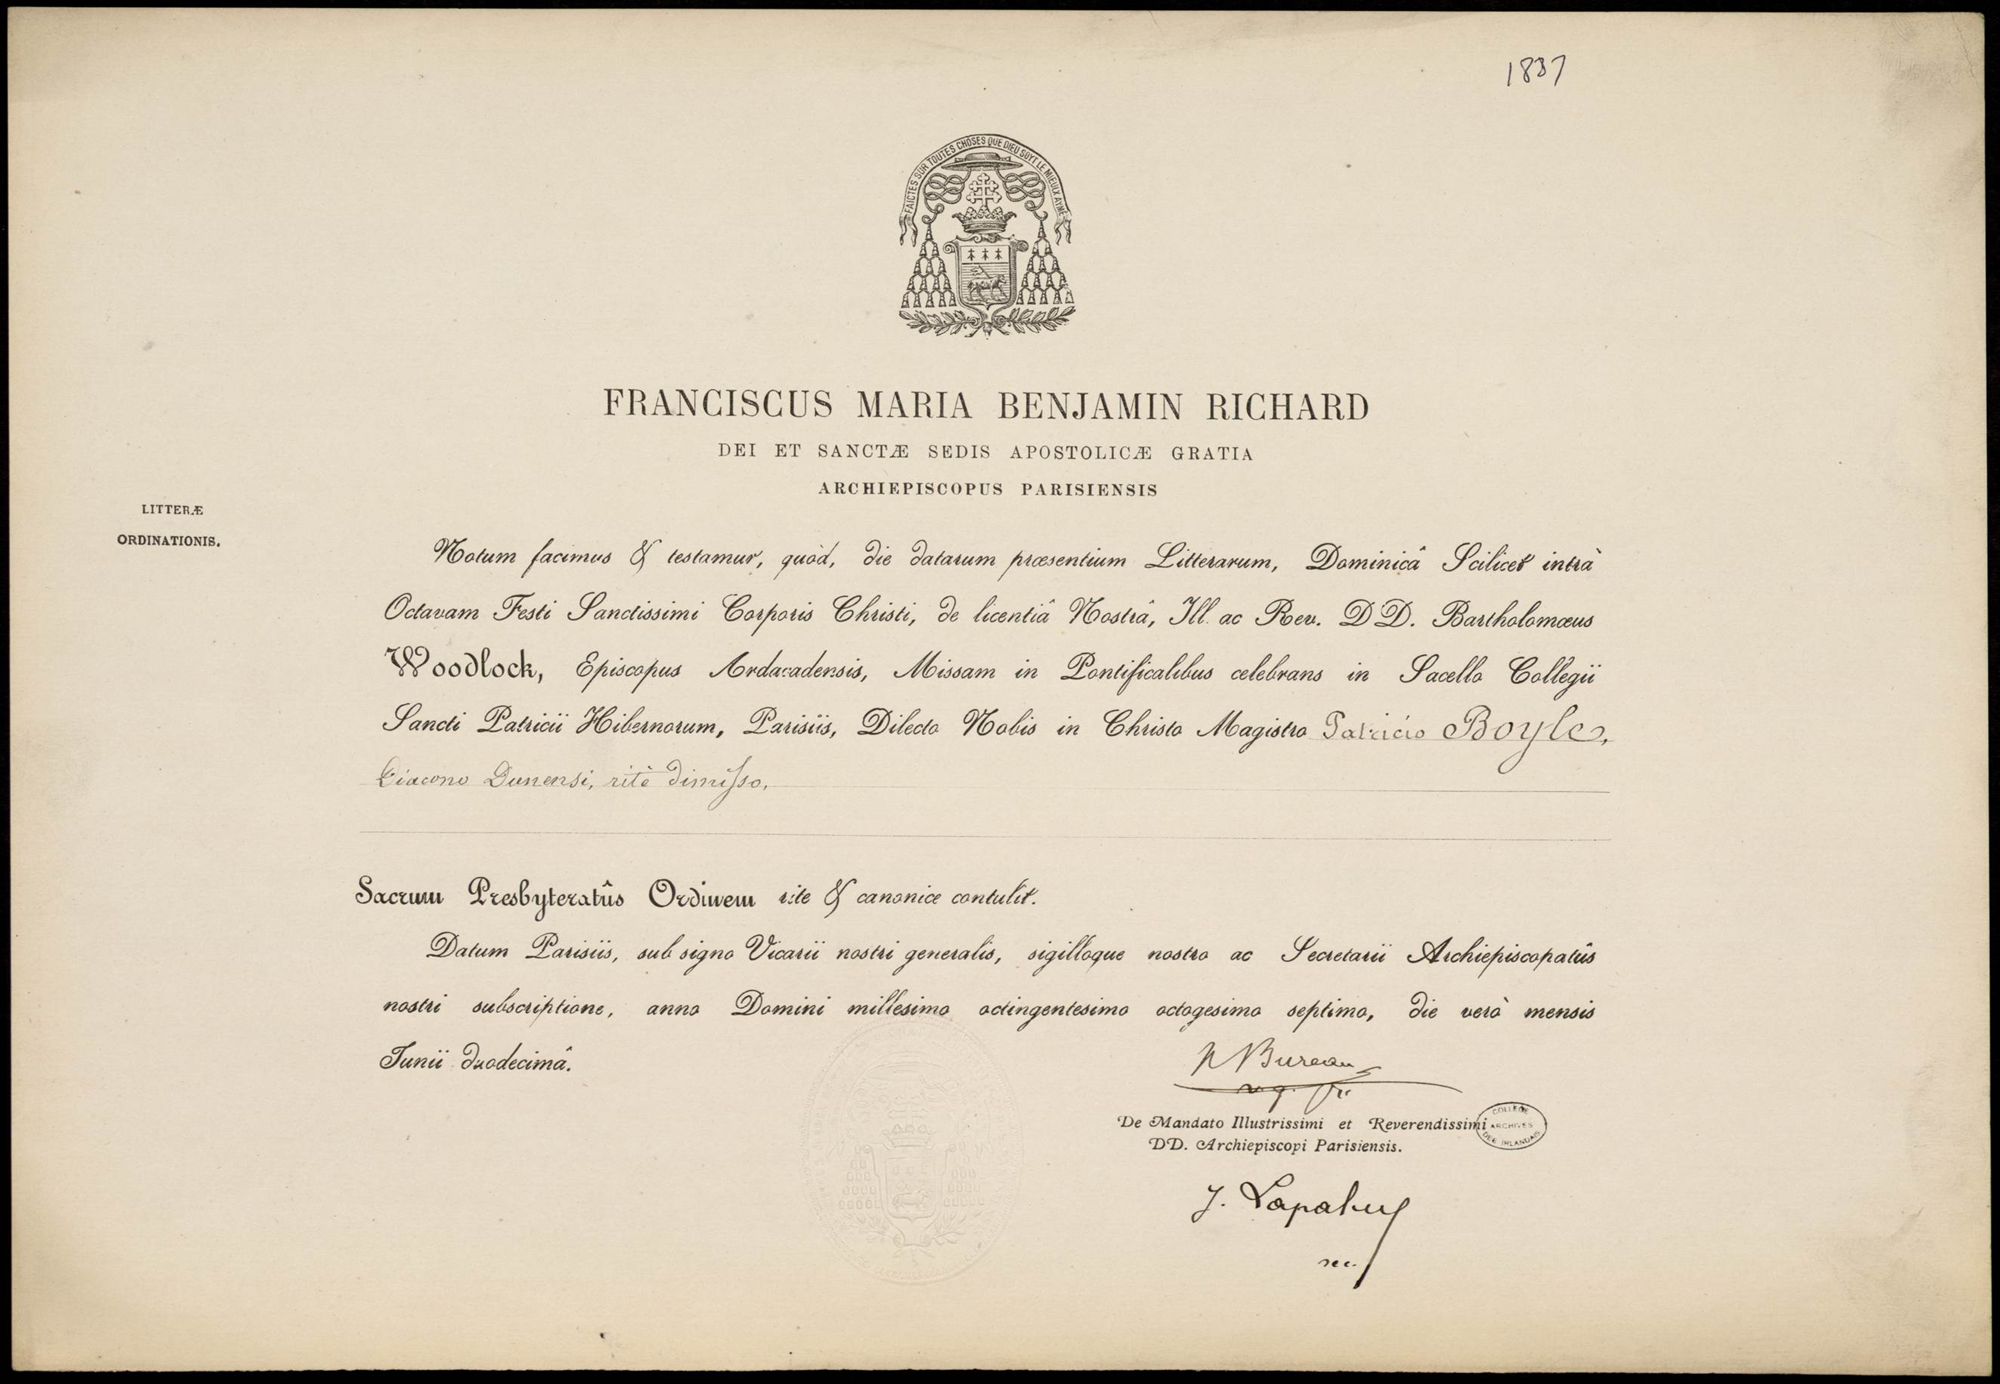 1837
FAICTES SUR TOUTES CHOSES QUE DIEU SOYT LE MIEULX AYMÉ
FRANCISCUS MARIA BENJAMIN RICHARD
DEI ET SANCTÆ SEDIS APOSTOLICÆ GRATIA
ARCHIEPISCOPUS PARISIENSIS
LITTERÆ
ORDINATIONIS.
Notum facimus & testamur, quòd, die datarum præsentium Litterarum, Dominicâ Scilicet intrà
Octavam Festi Sanctissimi Corporis Christi, de licentiâ Nostrâ, Ill. ac Rev. DD. Bartholomœus
Woodlock, Episcopus Ardacadensis, Missam in Pontificalibus celebrans in Sacello Collegii
Sancti Patricii Hibernorum, Parisiis, Dilecto Nobis in Christo Magistro Patricio Boyle,
Diacono Dunensi, ritè dimisso,
Sacrum Presbyteratûs Ordinem rite & canonice contulit.
Datum Parisiis, sub signo Vicarii nostri generalis, sigilloque nostro ac Secretarii Archiepiscopatûs
nostri subscriptione, anno Domini millesimo octingentesimo octogesimo septimo, die verò mensis
Junii duodecimâ.
Bureau
v.g.
De Mandato Illustrissimi et Reverendissimi
DD. Archiepiscopi Parisiensis.
COLLEGE
ARCHIVES
DES IRLANDAIS
J.
sec.